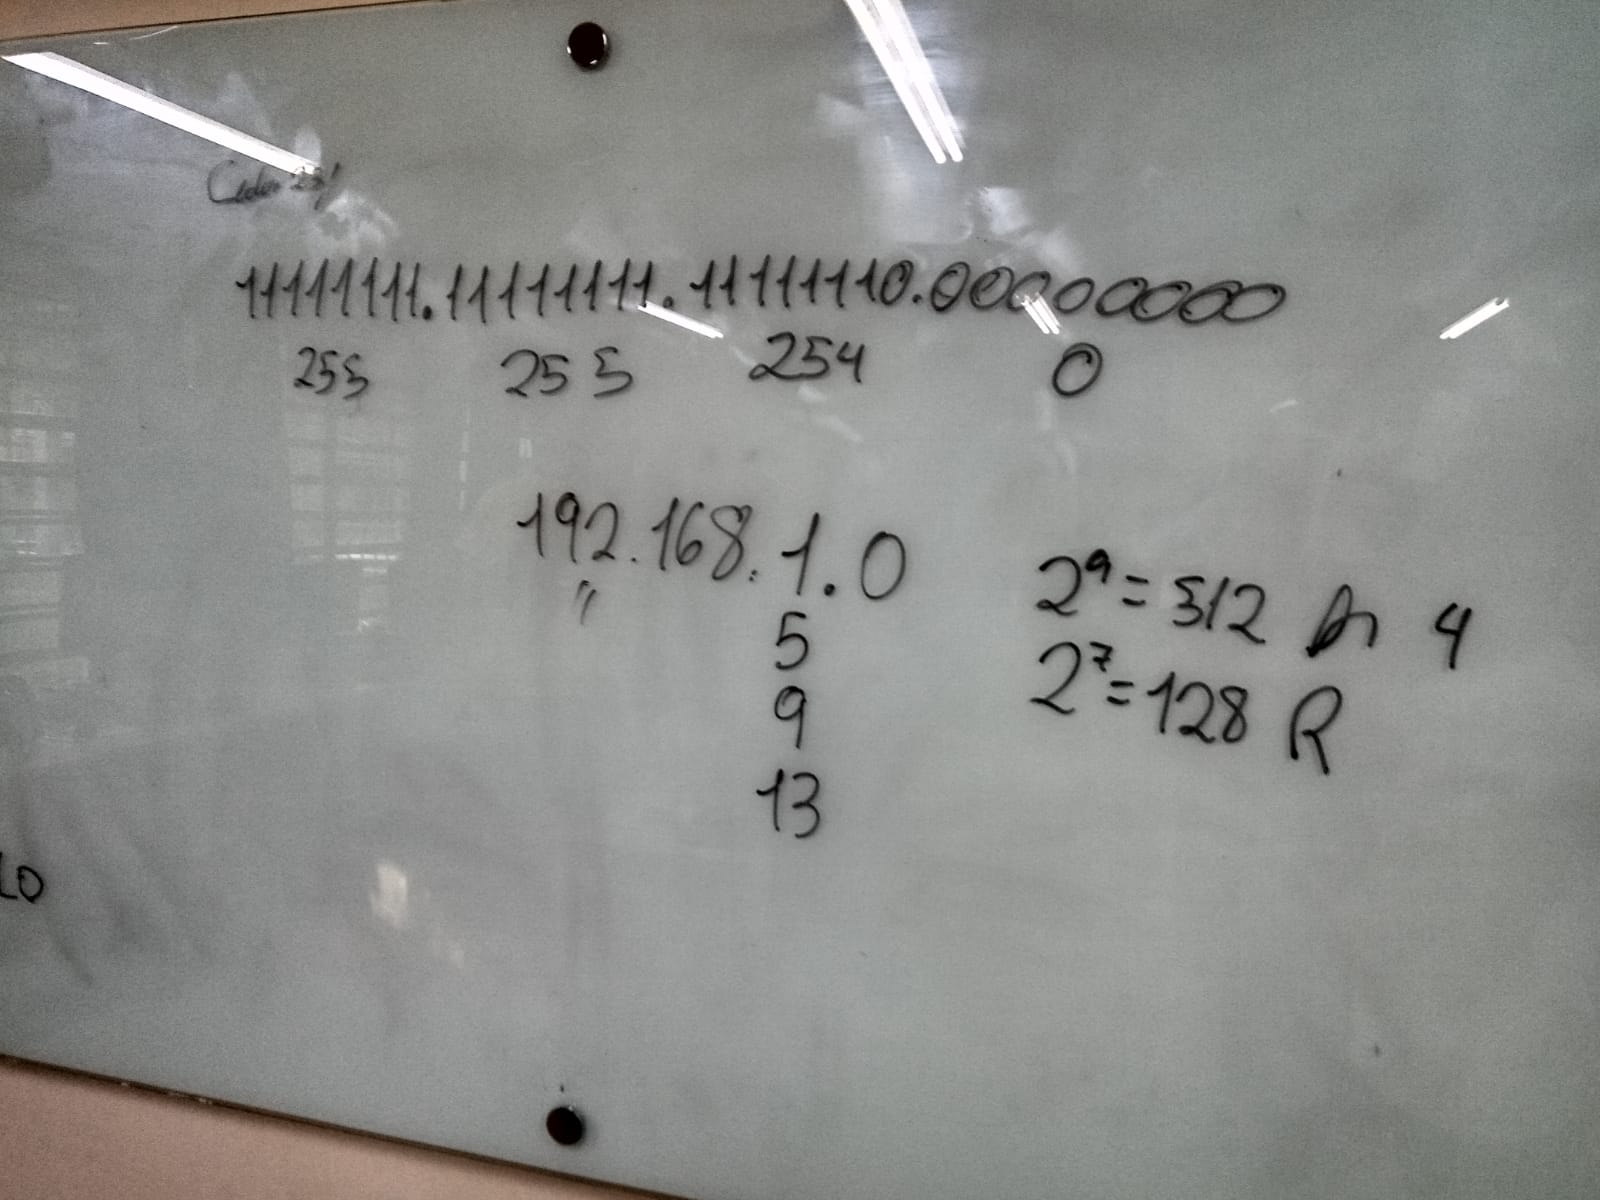 11111111.11111111.11111110.00000000
255 255 254 0
192.168.1.0
"
5
9
13
2⁹=512 4
2⁷=128 R
LO